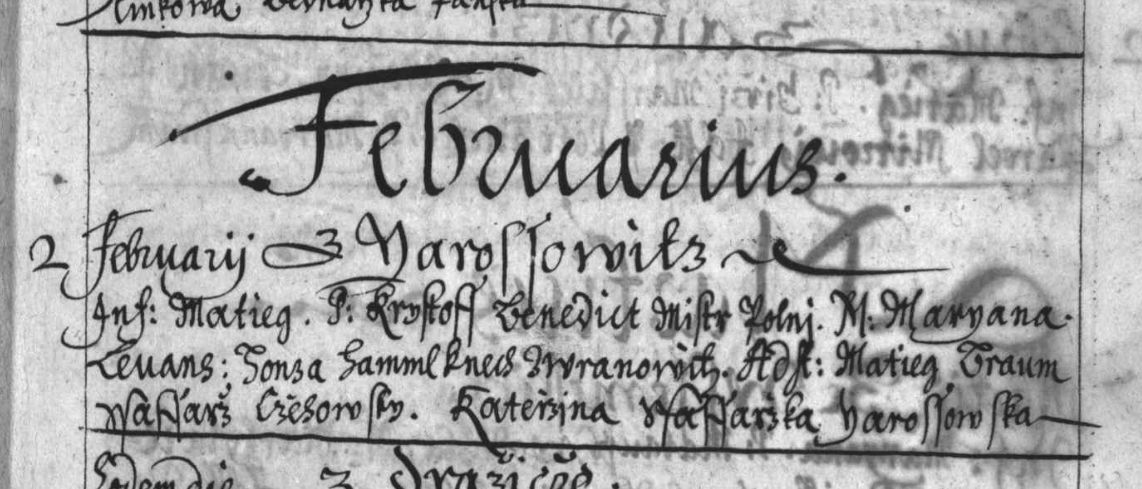 Februarius.
2 Februarij z Yarossowitz
Inf: Matieg. P: Krystoff Benedict Mistr Polni. M: Maryana.
Levans: Honza Hammlknech z Wranowitz. Adst: Matieg Traum
Ssaffarz Czehowsky. Katerzina Ssaffarzka Yarossowska
Eodem die z Drazicze.